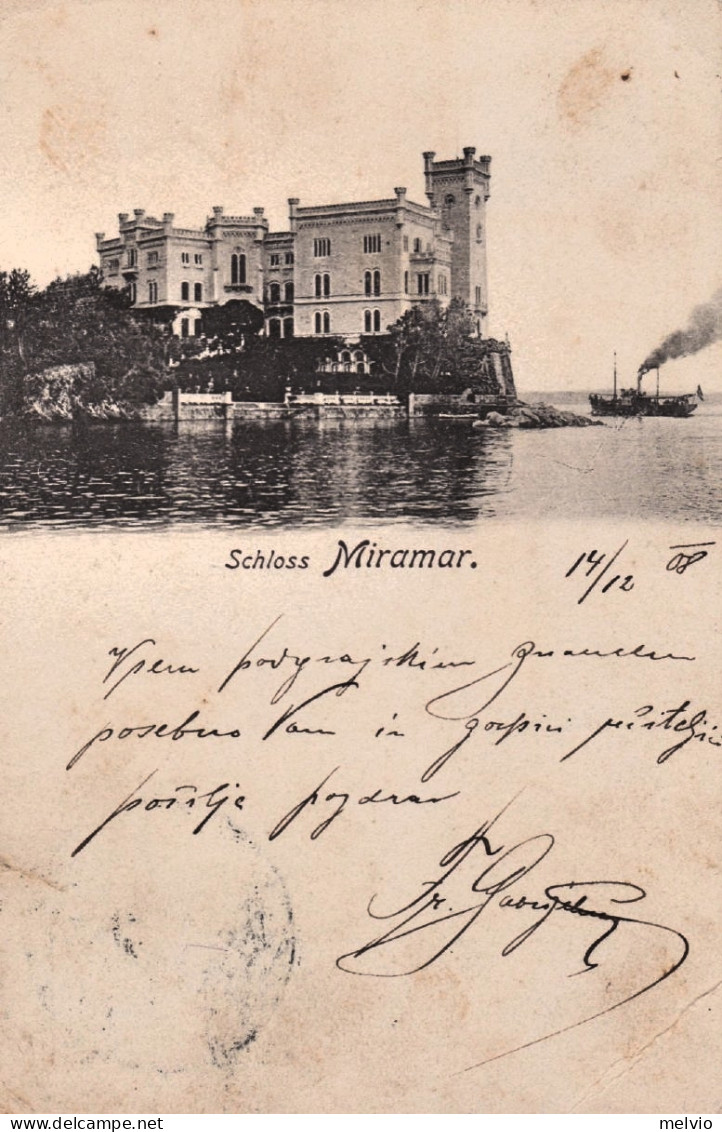 Schloss Miramar.
14/12 08
Vsem podgrajskim znancem
posebno Vam in gospici učiteljici
pošilja pozdrav
Fr.
melvio
delcampe.net